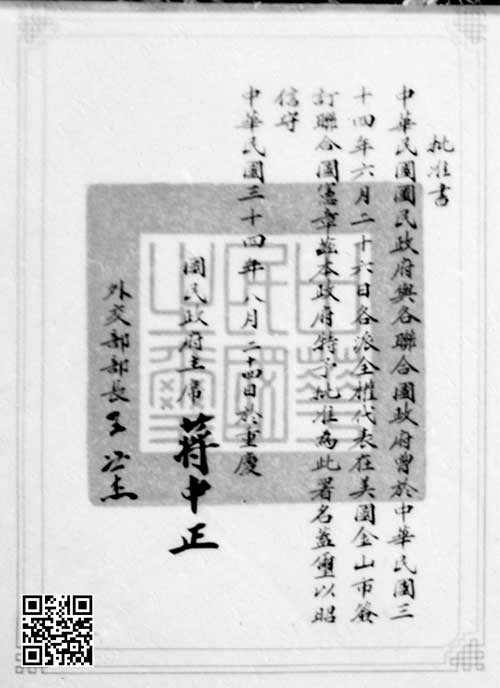 批准書
中華民國國民政府與各聯合國政府曾於中華民國三
十四年六月二十六日各派全權代表在美國金山市簽
訂聯合國憲章茲本政府特予批准為此署名蓋璽以昭
信守
中華民國三十四年八月二十四日於重慶
國民政府主席 蔣中正
外交部部長 王世杰
中華民國之璽